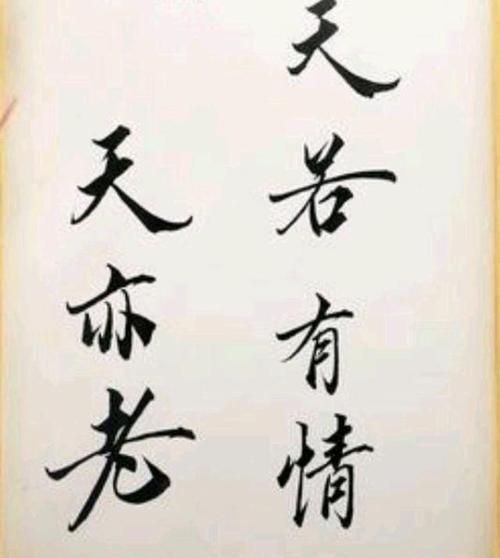 天若有情
天亦老